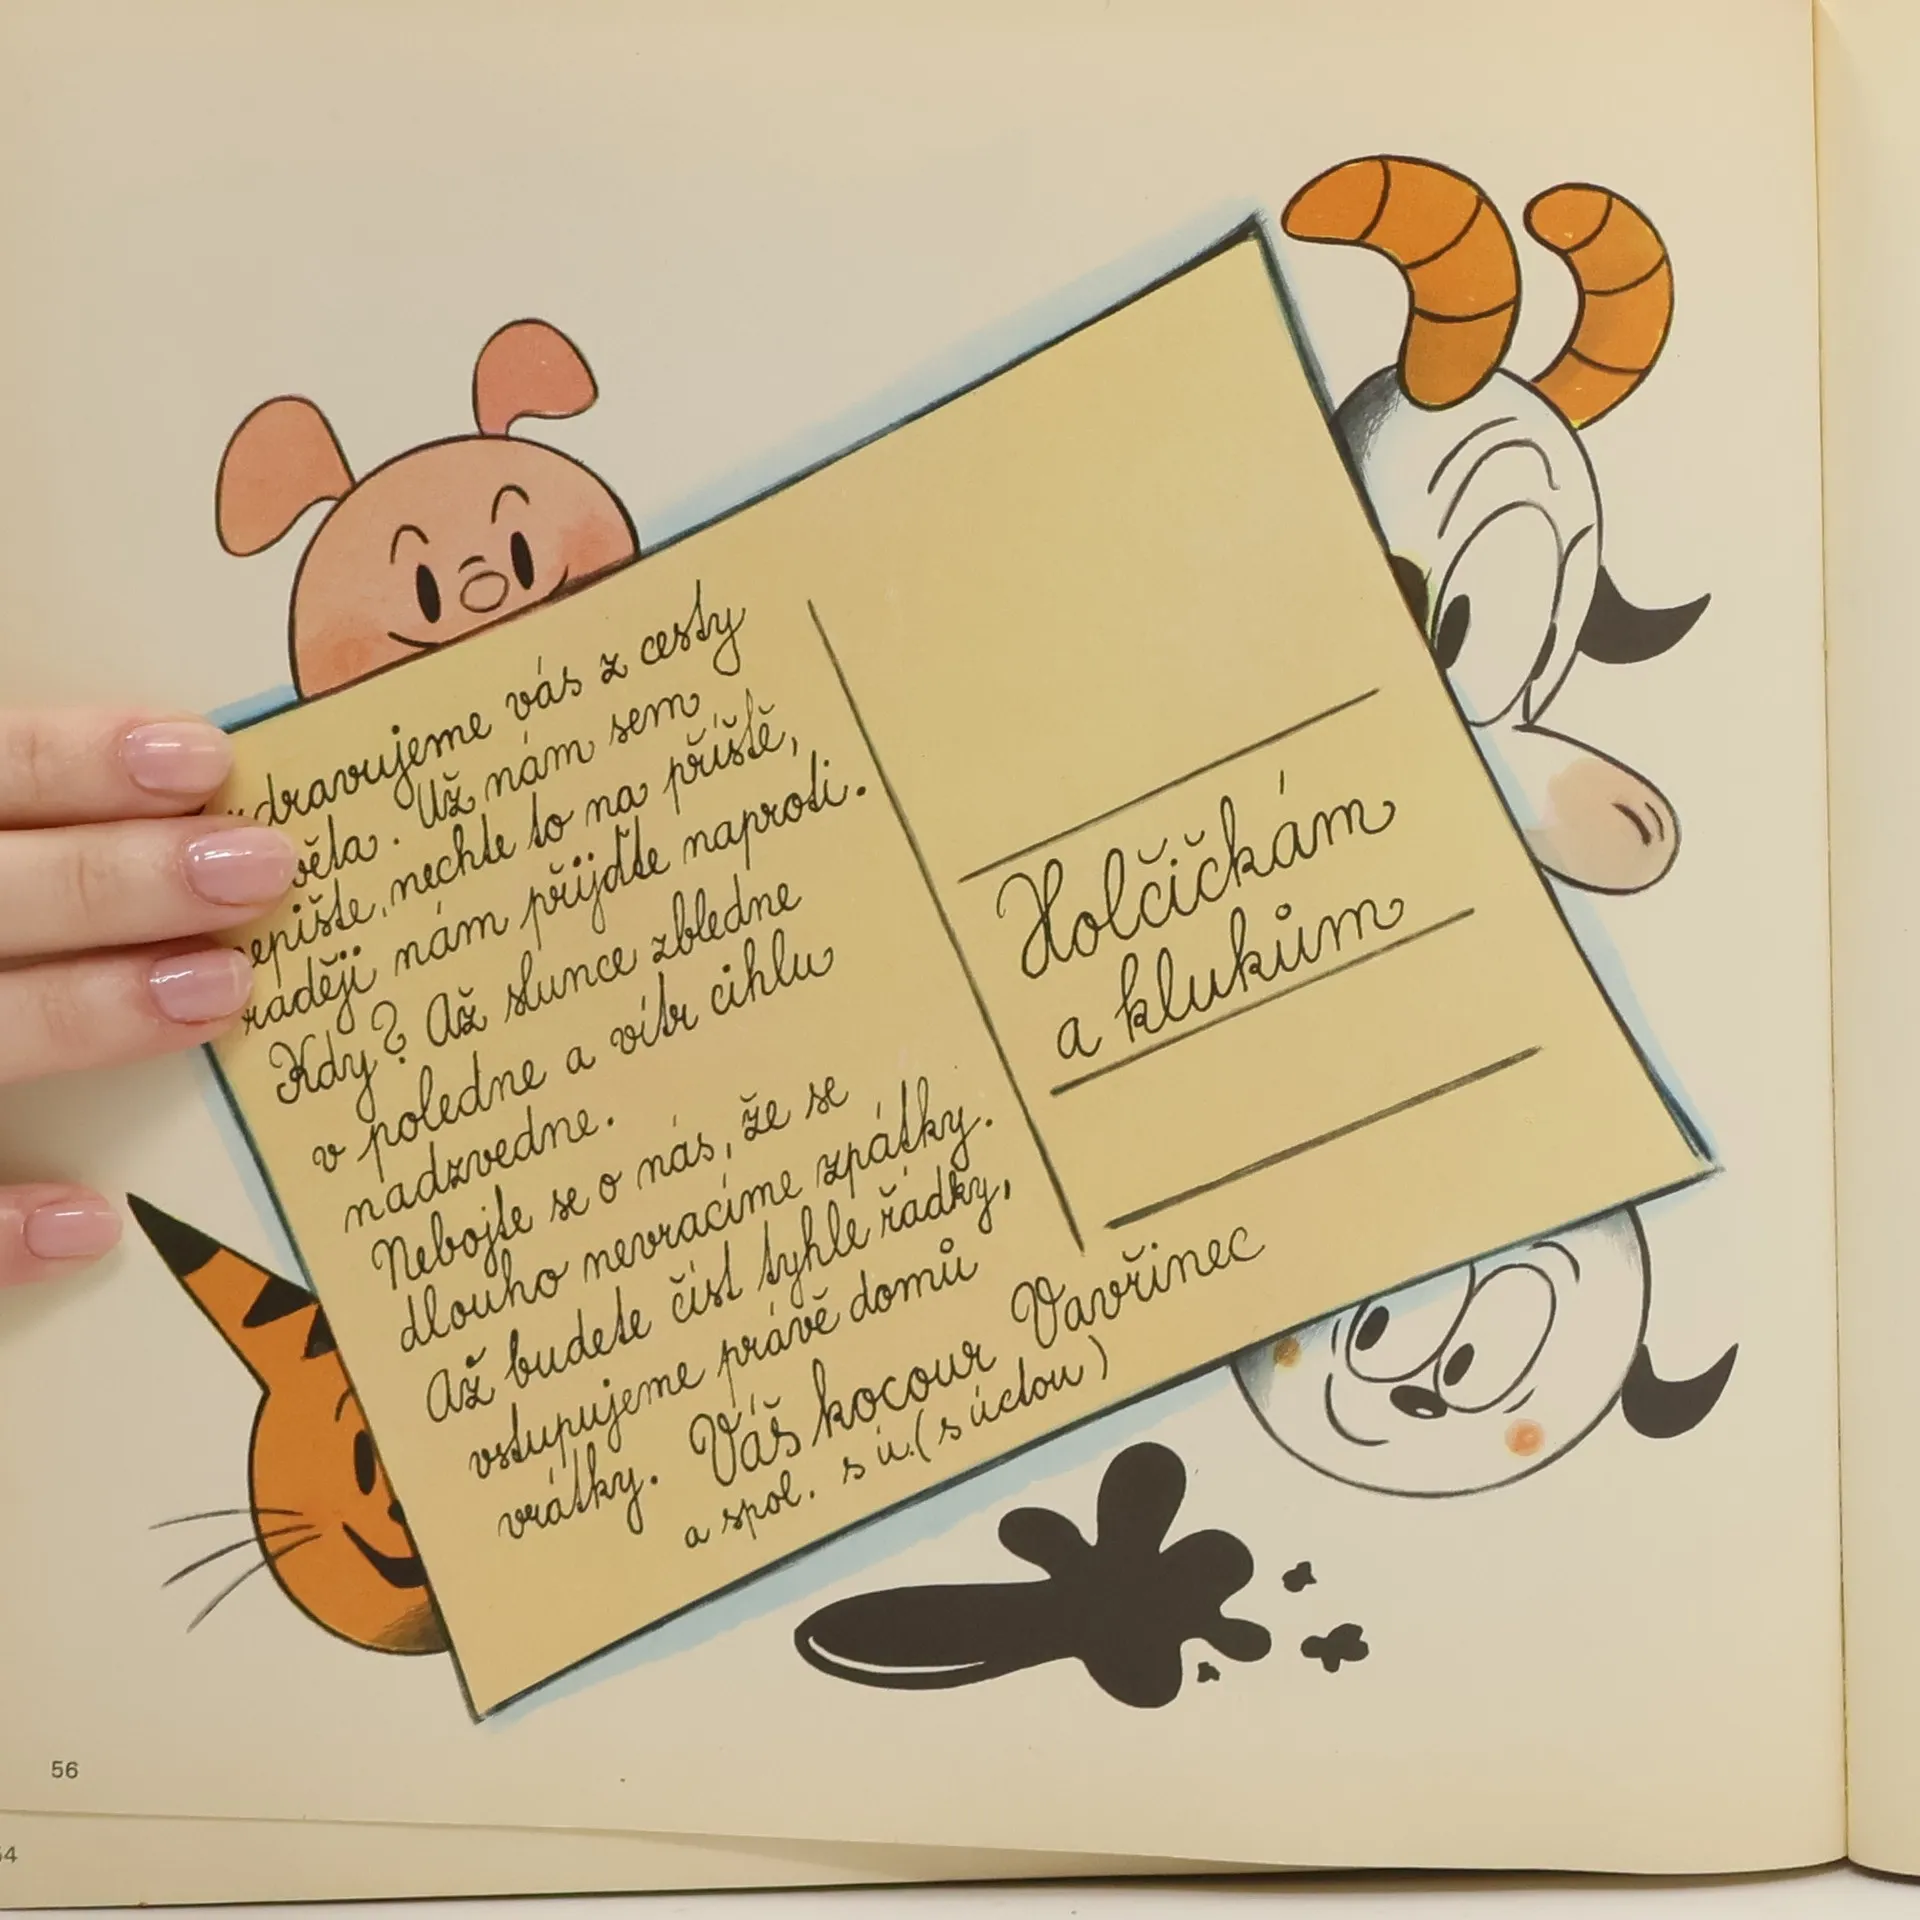 zdravujeme vás z cesty
světa. Už nám sem
nepište, nechte to na příště,
raději nám přijďte naproti.
Kdy? Až slunce zbledne
v poledne a vítr cihlu
nadzvedne.
Nebojte se o nás, že se
dlouho nevracíme zpátky.
Až budete číst tyhle řádky,
vstupujeme právě domů
vrátky. Váš kocour Vavřinec
a spol. s ú. (s úctou)
Holčičkám
a klukům
56
54